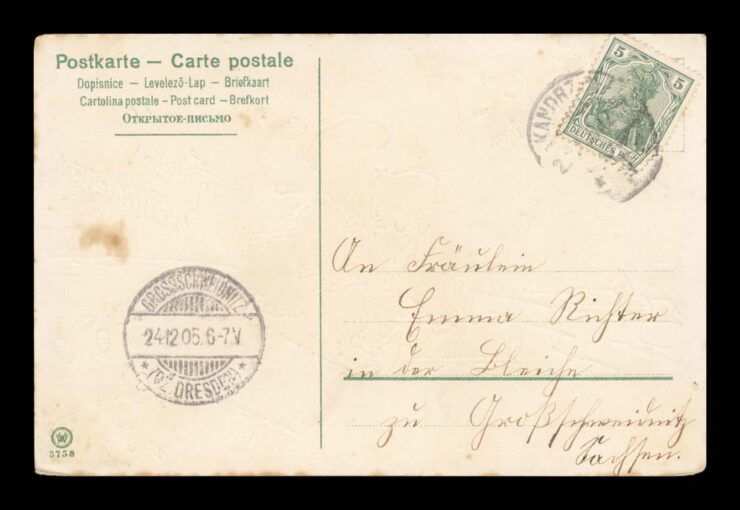 Postkarte — Carte postale
Dopisnice — Levelező-Lap — Briefkaart
Cartolina postale – Post card – Brefkort
Открытое-письмо
5
5
DEUTSCHES REICH
KANDRZ
2
An Fräulein
Emma Richter
in der Bleiche
zu Großschweidnitz
Sachsen.
GROSSSCHWEIDNITZ
24.12.05.6-7V
(BZ. DRESDEN)
5758